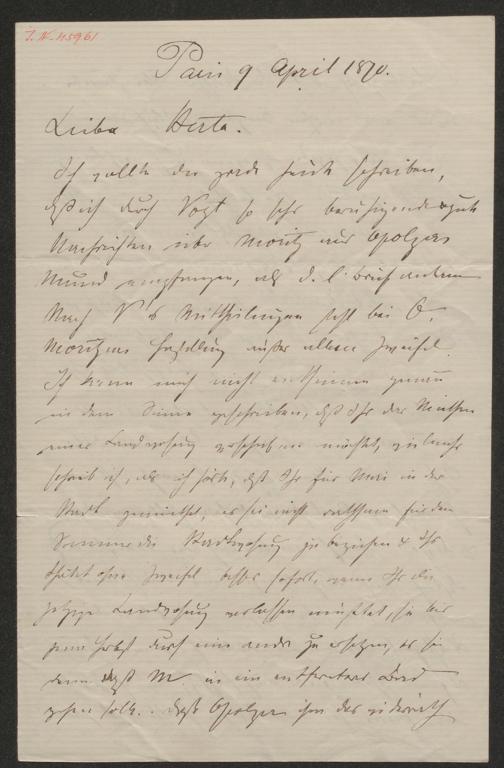 I. N. 45961
Paris 9 April 1870.
Liebe Herta.
Ich wollte dir gerade heute schreiben,
daß ich durch Vogt so sehr beruhigende gute
Nachrichten über Moritz aus Opolzers
Mund empfangen, als d. l. Brief ankam
Nach V's Mittheilungen steht bei O.
Moritzens Herstellung außer allem Zweifel.
Ich kann mich nicht entsinnen genau
in dem Sinne geschrieben, daß Ihr das Miethen
einer Landwohnung möchtet, vielmehr
schrieb ich, als ich hörte, daß Ihr für Mai in der
Stadt gemiethet, es sei nicht rathsam für den
Sommer die Stadtwohnung zu beziehen & Ihr
thätet ohne Zweifel besser sofort, wenn Ihr die
jetzige Landwohnung verlassen müßtet, sie bis
zum Herbst durch eine andre zu ersetzen, es sei
denn daß M. in ein entferntes Bad
gehen solle. Daß Opolzer ihm das widerräth